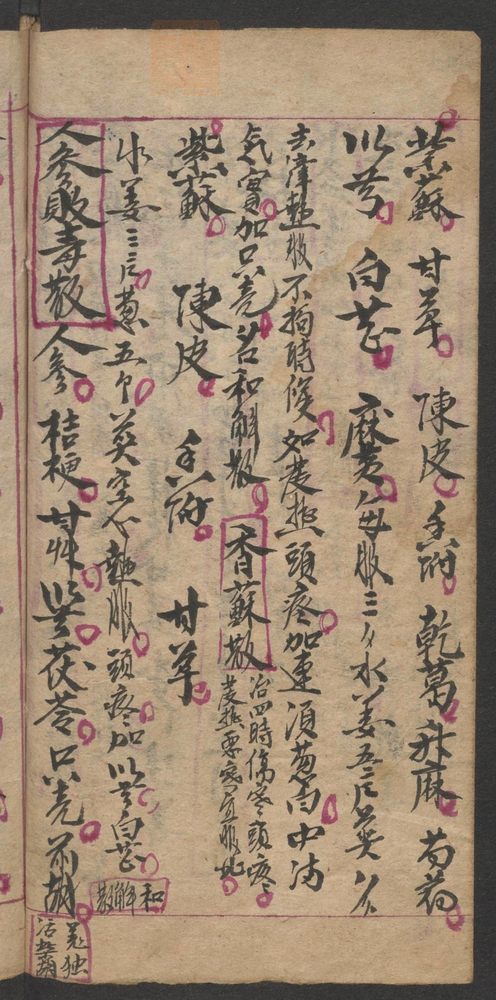 紫蘇 甘草 陳皮 香附 乾葛 升麻 芍藥
川芎 白芷 麻黃 每服三 水 姜五片 煎
去滓熱服不拘時候 如發熱頭疼加連須葱白 中滿
氣實加只壳 名和解散 香蘇散 治四時傷寒頭疼
發熱惡寒宜服此
紫蘇 陳皮 香附 甘草
水 姜三片 葱五个 煎 空心熱服 頭疼加川芎白芷
和解散
人參敗毒散 人參 桔梗 甘艸 川芎 茯苓 只壳 前胡
羌独
活柴胡